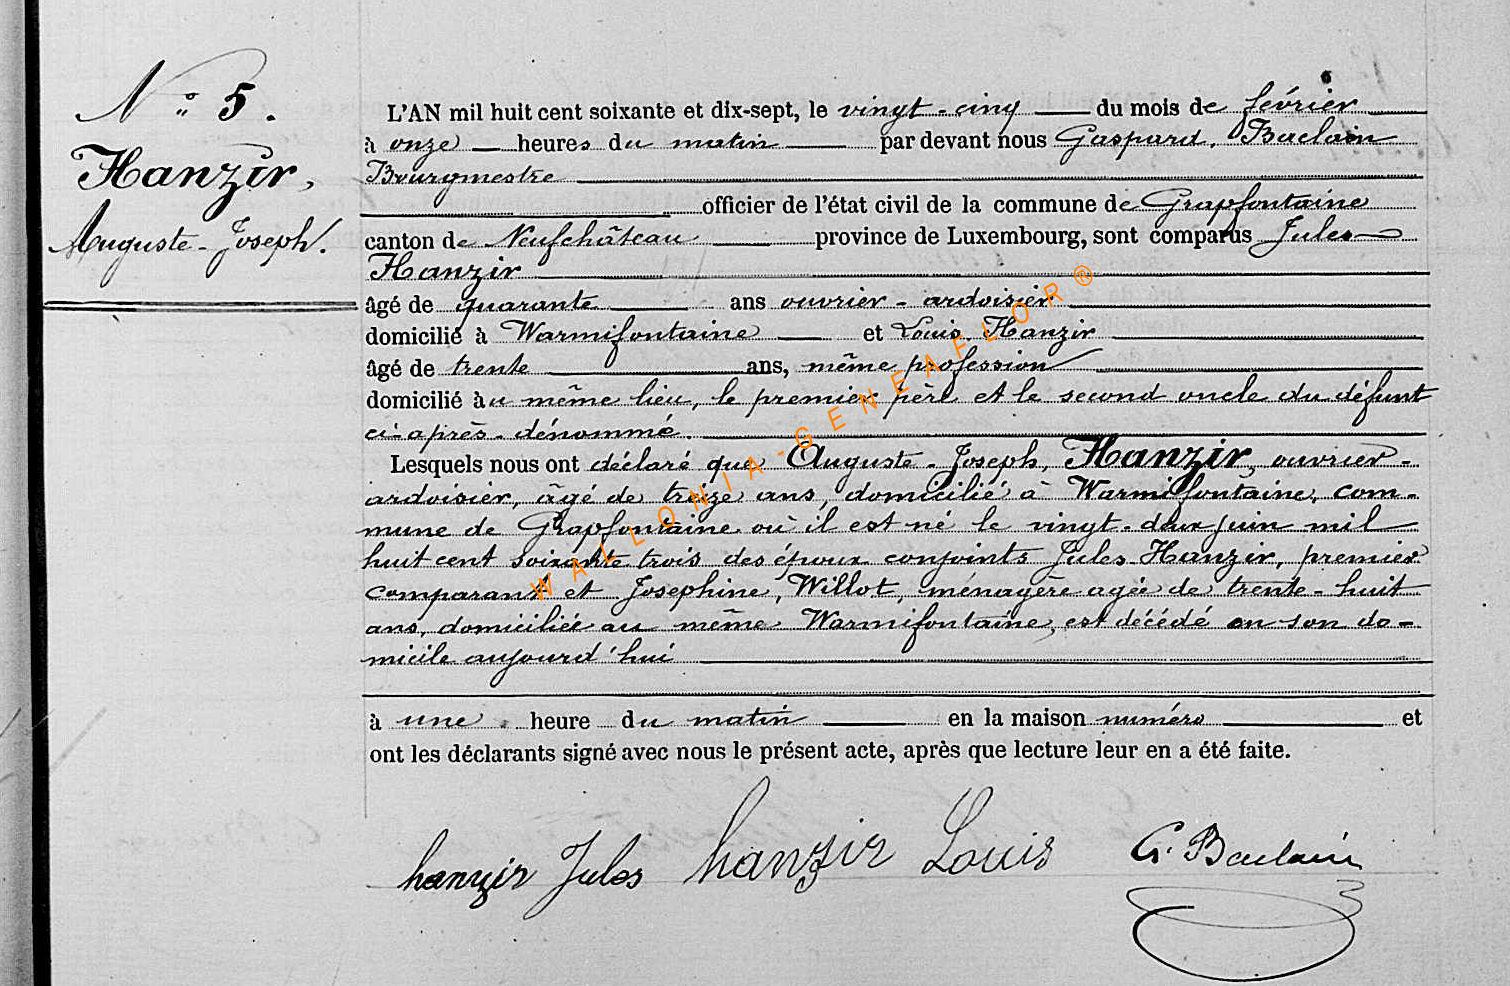 N° 5.
Hanzir,
Auguste-Joseph.
L'AN mil huit cent soixante et dix-sept, le vingt-cinq du mois de février
à onze heures du matin par devant nous Gaspard, Baclain
Bourgmestre
officier de l'état civil de la commune de Grapfontaine
canton de Neufchâteau province de Luxembourg, sont comparus Jules
Hanzir
âgé de quarante ans ouvrier-ardoisier
domicilié à Warmifontaine et Louis Hanzir
âgé de trente ans, même profession
domicilié au même lieu, le premier père et le second oncle du défunt
ci-après-dénommé.
Lesquels nous ont déclaré que Auguste-Joseph, Hanzir, ouvrier-
ardoisier, âgé de treize ans, domicilié à Warmifontaine, com-
mune de Grapfontaine où il est né le vingt-deux juin mil
huit cent soixante trois des époux conjoints Jules Hanzir, premier
comparant et Josephine, Willot, ménagère agée de trente-huit
ans, domiciliée au même Warmifontaine, est décédé en son do-
micile aujourd'hui
à une heure du matin en la maison numéro et
ont les déclarants signé avec nous le présent acte, après que lecture leur en a été faite.
hanzir Jules hanzir Louis G. Baclain
WALLONIA-GENEAFLOR®